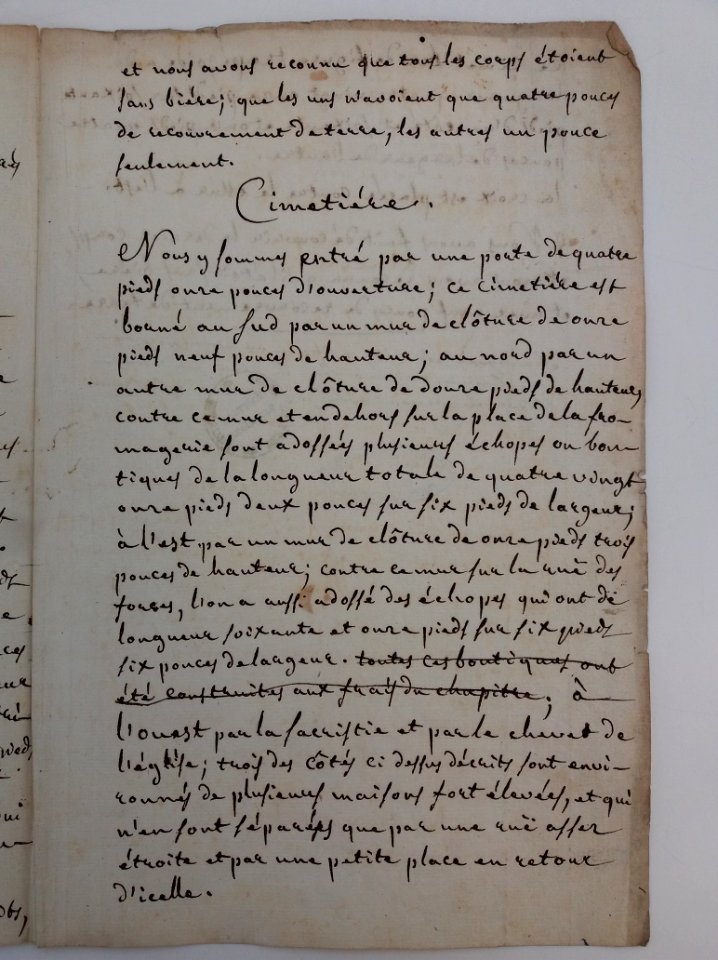 et nous avons reconnu que tous les corps étoient
sans biére; que les uns n'avoient que quatre pouces
de recouvrement de terre, les autres un pouce
seulement.
Cimetiére.
Nous y sommes entré par une porte de quatre
pieds onze pouces d'ouverture; ce cimetiére est
borné au sud par un mur de clôture de onze
pieds neuf pouces de hauteur; au nord par un
autre mur de clôture de douze pieds de hauteur,
contre ce mur et en dehors sur la place de la fro-
magerie sont adossées plusieurs échopes ou bou-
tiques de la longueur totale de quatre vingt
onze pieds deux pouces sur six pieds de largeur;
à l'est par un mur de clôture de onze pieds trois
pouces de hauteur; contre ce mur sur la ruë des
forces, l'on a aussi adossé des échopes qui ont de
longueur soixante et onze pieds sur six pieds
six pouces de largeur. toutes ces boutiques ont
été construites aux frais du chapitre; à
l'ouest par la sacristie et par le chevet de
l'église; trois des côtés ci dessus décrits sont envi-
ronnés de plusieurs maisons fort élevées, et qui
n'en sont séparées que par une ruë assez
étroite et par une petite place en retour
d'icelle.